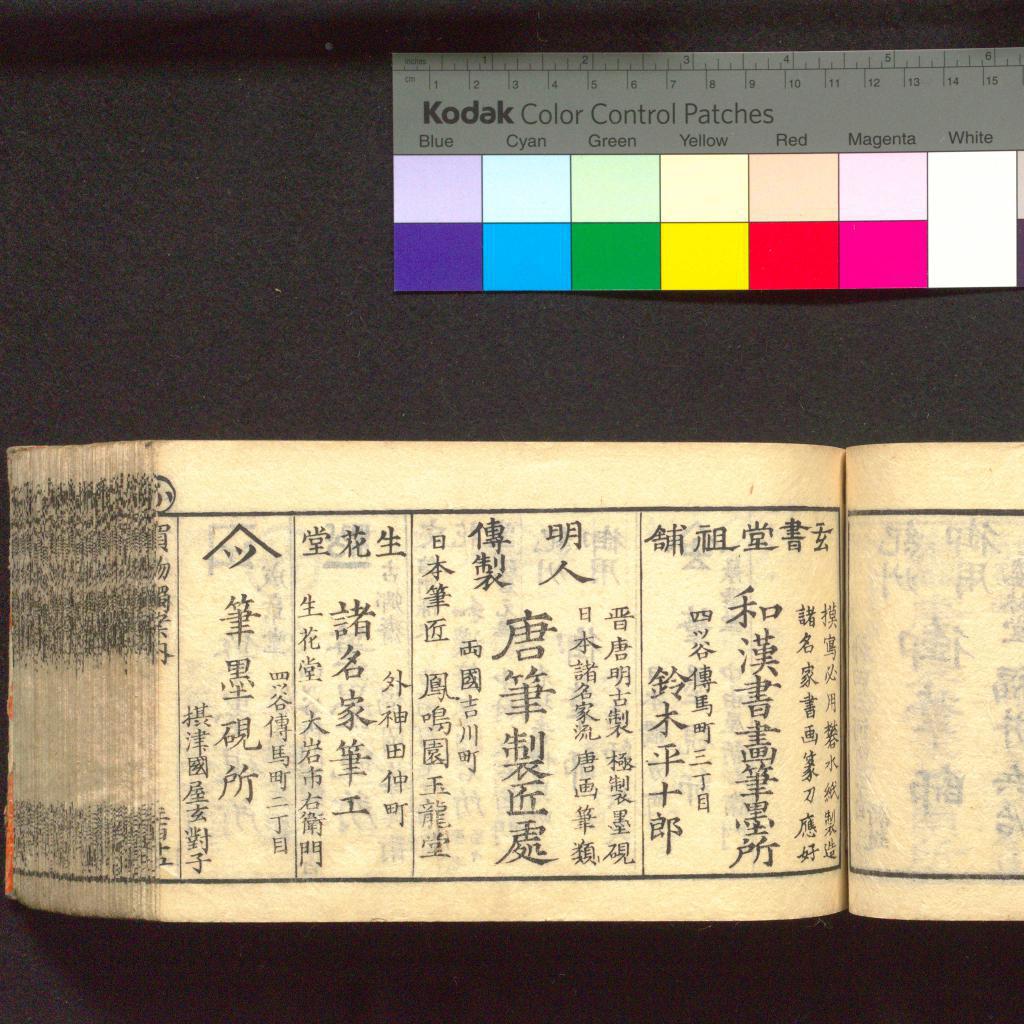 inches 1 2 3 4 5 6
cm 1 2 3 4 5 6 7 8 9 10 11 12 13 14 15
Kodak Color Control Patches
Blue Cyan Green Yellow Red Magenta White
玄書堂祖舗
摸寫必用礬水紙製造
諸名家書画篆刀應好
和漢書畫筆墨所
四ツ谷傳馬町三丁目
鈴木平十郎
明人傳製
晋唐明古製 極製墨硯
日本諸名家流 唐画筆類
唐筆製匠處
両國吉川町
日本筆匠 鳳鳴園玉龍堂
生花堂
外神田仲町
諸名家筆工
生花堂 大岩市右衛門
筆墨硯所
四ツ谷傳馬町二丁目
摂津國屋玄對子